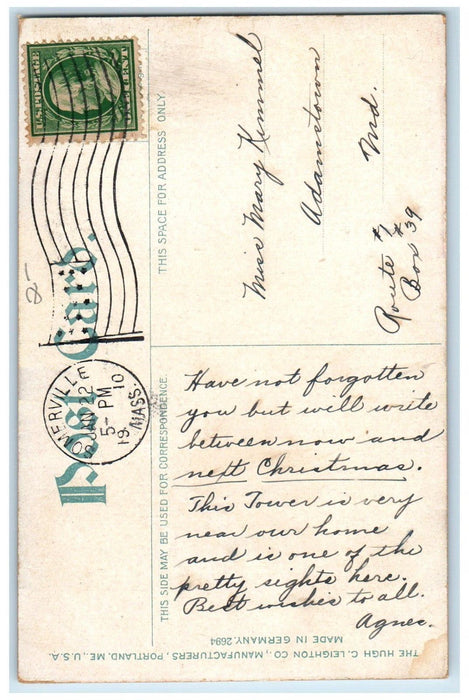 U.S. POSTAGE
ONE CENT
Post Card.
SOMERVILLE
JAN 12
5- PM
1910
MASS.
THIS SPACE FOR ADDRESS ONLY.
Miss Mary Kimmel
Adamstown
Md.
Route #
Box #39
THIS SIDE MAY BE USED FOR CORRESPONDENCE.
Have not forgotten
you but will write
between now and
next Christmas.
This Tower is very
near our home
and is one of the
pretty sights here.
Best wishes to all.
Agnes.
THE HUGH C. LEIGHTON CO., MANUFACTURERS, PORTLAND, ME., U.S.A.
MADE IN GERMANY. 2694